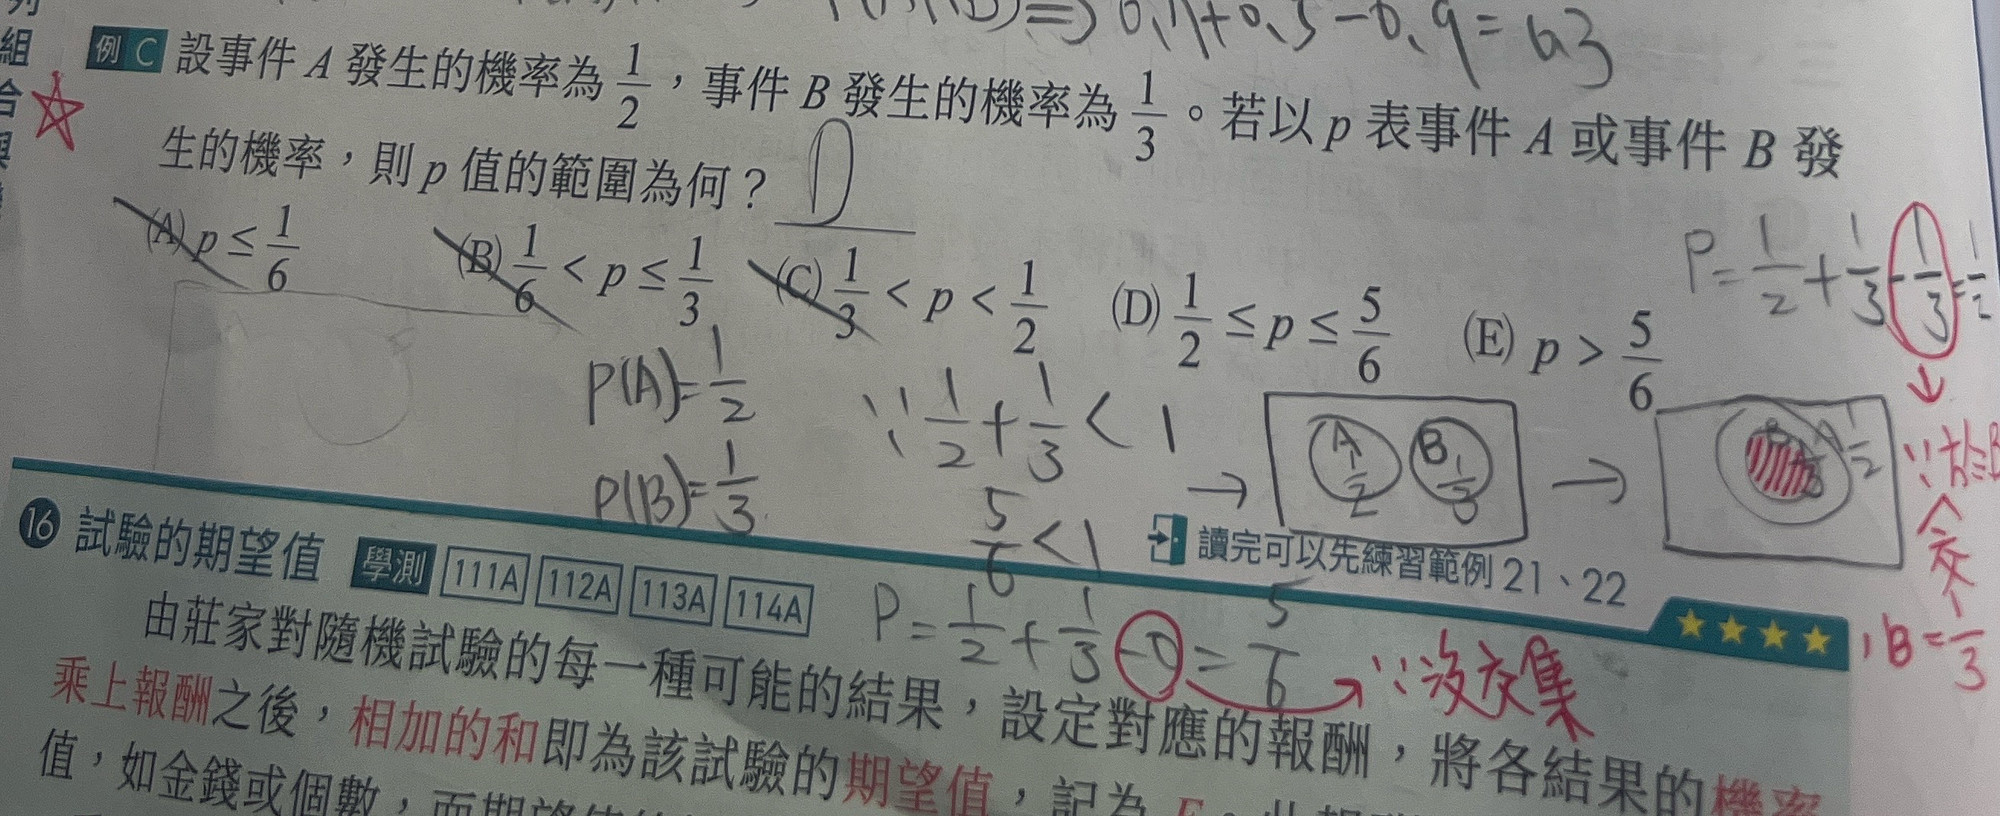 P(A∩B)⇒0.7+0.5-0.9=0.3
組
合
與
例C 設事件 A 發生的機率為 1/2,事件 B 發生的機率為 1/3。若以 p 表事件 A 或事件 B 發
生的機率,則 p 值的範圍為何? D
(A) p ≤ 1/6 (B) 1/6 < p ≤ 1/3 (C) 1/3 < p < 1/2 (D) 1/2 ≤ p ≤ 5/6 (E) p > 5/6
P=1/2+1/3-1/3=1/2
P(A)=1/2
P(B)=1/3
∵1/2+1/3<1
5/6<1
→ A 1/2 B 1/3 → A 1/2
P=1/2+1/3-0=5/6
∵沒交集
交
B=1/3
讀完可以先練習範例 21、22
16 試驗的期望值 學測 111A 112A 113A 114A
★★★★
由莊家對隨機試驗的每一種可能的結果,設定對應的報酬,將各結果的機率
乘上報酬之後,相加的和即為該試驗的期望值,記為 E。
值,如金錢或個數,而期望值